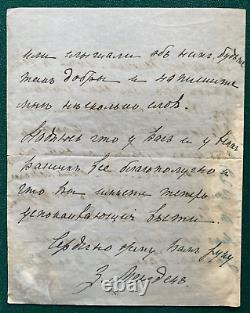 или слышали объ нихъ, будьте
такъ добры и напишите
мнѣ нѣсколько словъ.
Надѣюсь что у Васъ и у
Вашихъ все благополучно и
что Вы имѣете теперь
успокаивающiя вѣсти.
Сердечно жму Вамъ руку
З.